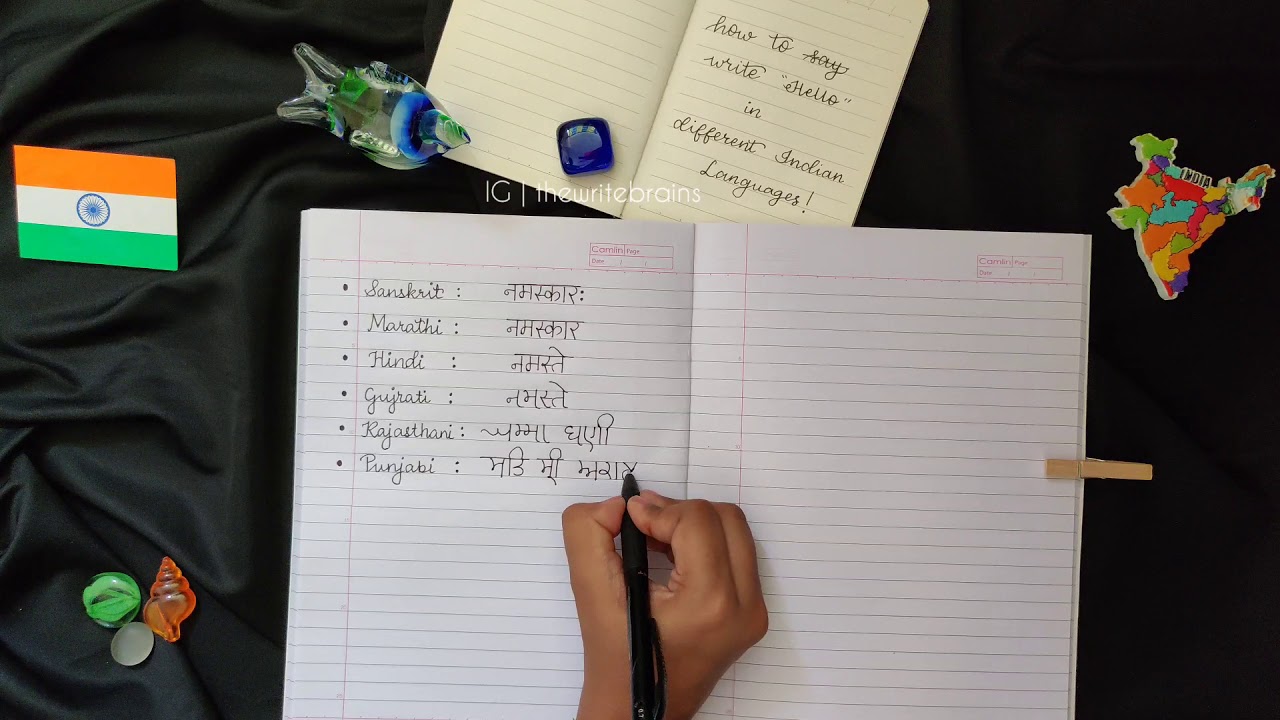 how to say
write "Hello"
in
different Indian
Languages!
IG | thewritebrains
INDIA
Camlin Page
Date / /
Camlin Page
Date / /
• Sanskrit : नमस्कारः
• Marathi : नमस्कार
• Hindi : नमस्ते
• Gujrati : નમસ્તે
• Rajasthani : खम्मा घणी
• Punjabi : ਸਤਿ ਸ੍ਰੀ ਅਕਾਲ